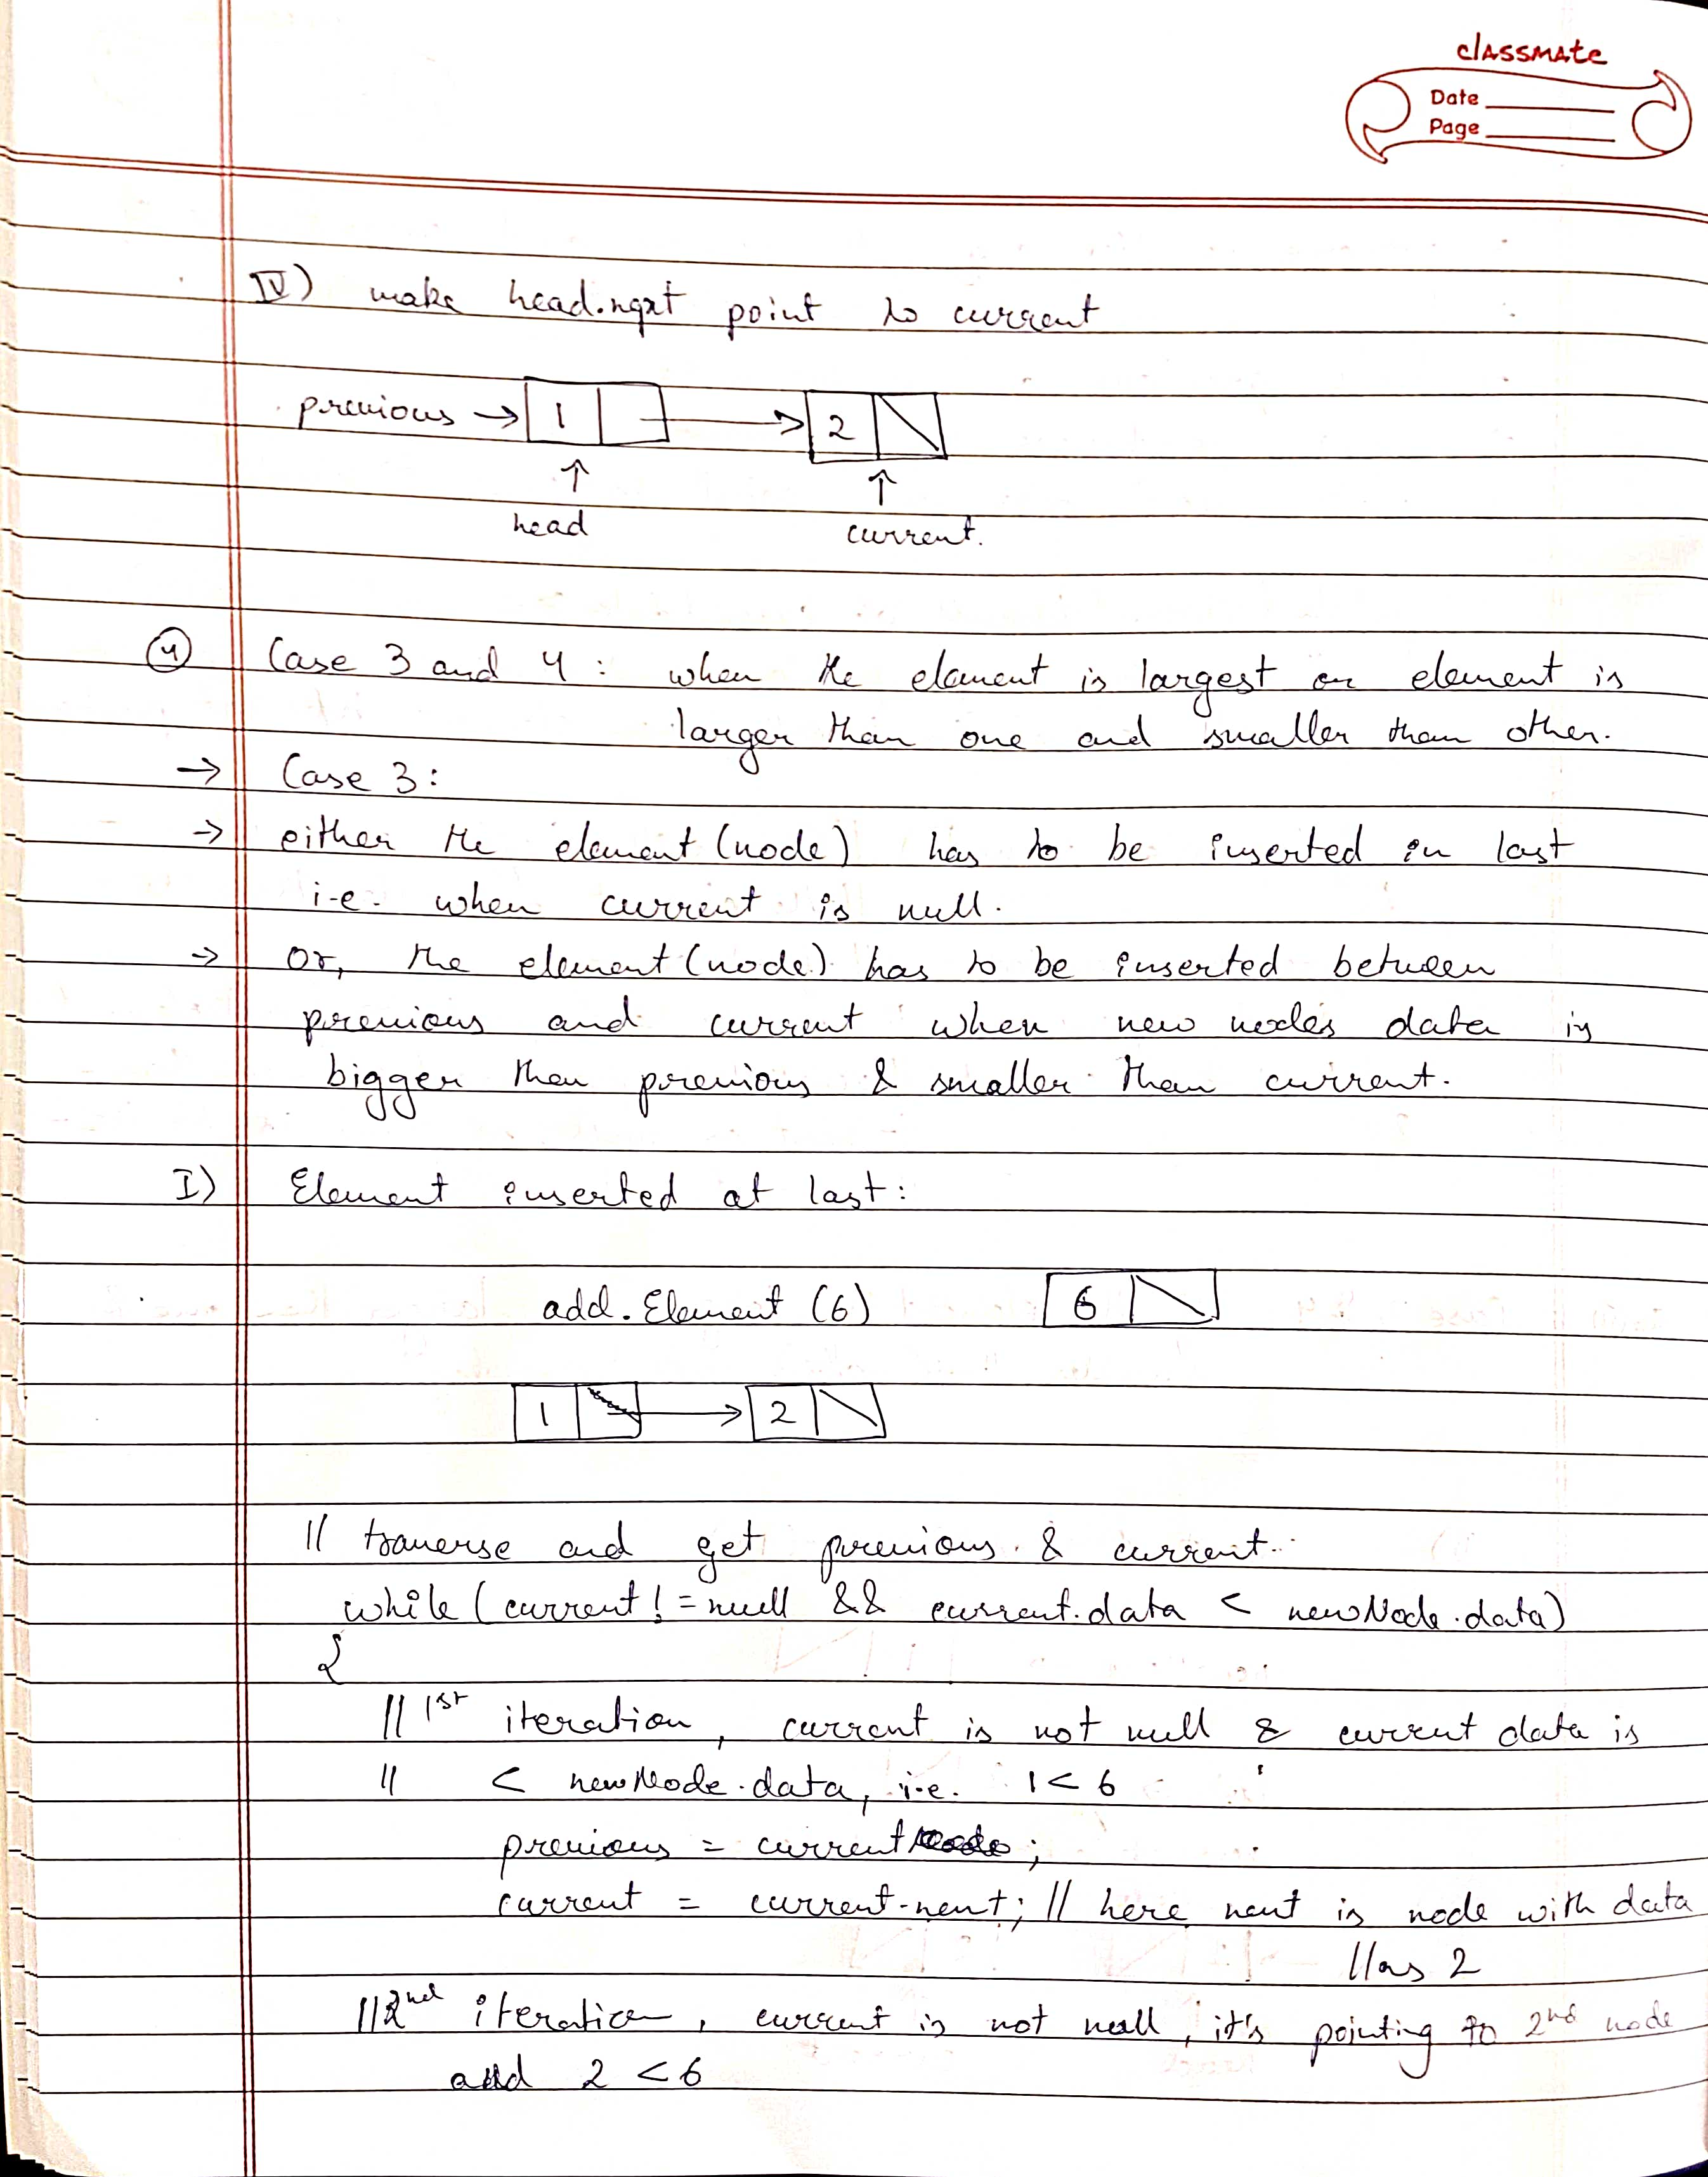 classmate
Date
Page
IV) make head.next point to current
previous → 1 2
head current.
4 Case 3 and 4 : when the element is largest or element is
larger than one and smaller than other.
→ Case 3 :
→ either the element (node) has to be inserted in last
i.e. when current is null.
→ Or, the element (node) has to be inserted between
previous and current when new nodes data is
bigger than previous & smaller than current.
I) Element inserted at last :
add.Element (6) 6
1 2
// traverse and get previous & current.
while (current != null && current.data < newNode.data)
{
// 1st iteration, current is not null & current data is
// < newNode.data, i.e. 1 < 6
previous = current ;
current = current.next; // here next is node with data
// as 2
// 2nd iteration, current is not null, it's pointing to 2nd node
and 2 < 6